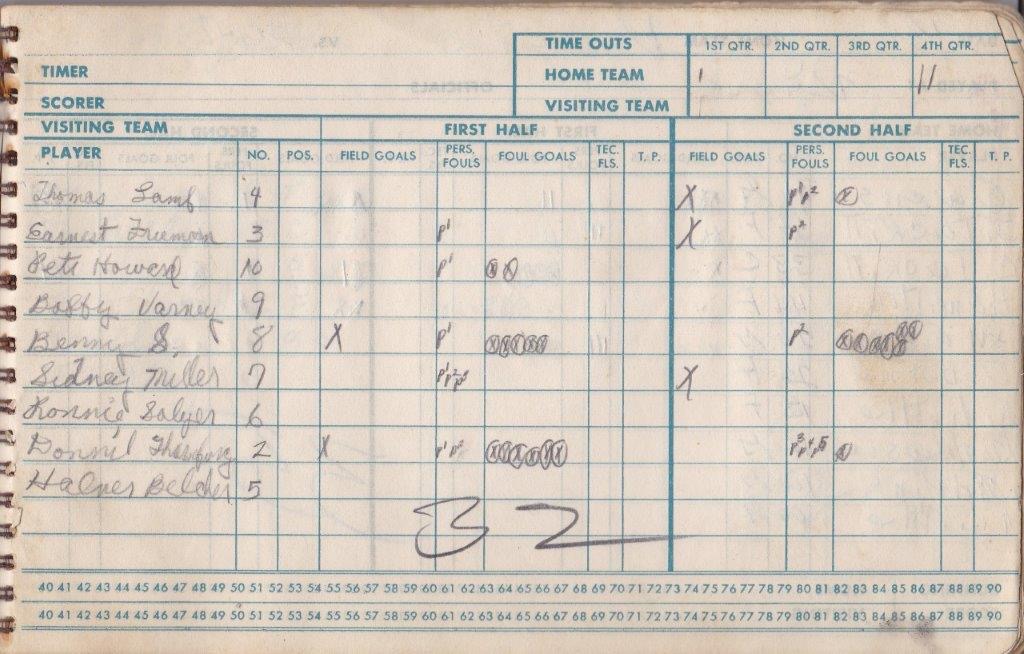 TIME OUTS 1ST QTR. 2ND QTR. 3RD QTR. 4TH QTR.
TIMER HOME TEAM
SCORER VISITING TEAM
VISITING TEAM FIRST HALF SECOND HALF
PLAYER NO. POS. FIELD GOALS PERS. FOULS FOUL GOALS TEC. FLS. T. P. FIELD GOALS PERS. FOULS FOUL GOALS TEC. FLS. T. P.
Thomas Lamb 4 X P1 P2 X
Earnest Freeman 3 P1 X P2
Pete Howard 10 P1
Bobby Varney 9
Benny S. 8 X P1 P2
Sidney Miller 7 P1 P2 P3 X
Ronnie Salyer 6
2 X P1 P2 P3 P4 P5
Belcher 5
32
40 41 42 43 44 45 46 47 48 49 50 51 52 53 54 55 56 57 58 59 60 61 62 63 64 65 66 67 68 69 70 71 72 73 74 75 76 77 78 79 80 81 82 83 84 85 86 87 88 89 90
40 41 42 43 44 45 46 47 48 49 50 51 52 53 54 55 56 57 58 59 60 61 62 63 64 65 66 67 68 69 70 71 72 73 74 75 76 77 78 79 80 81 82 83 84 85 86 87 88 89 90